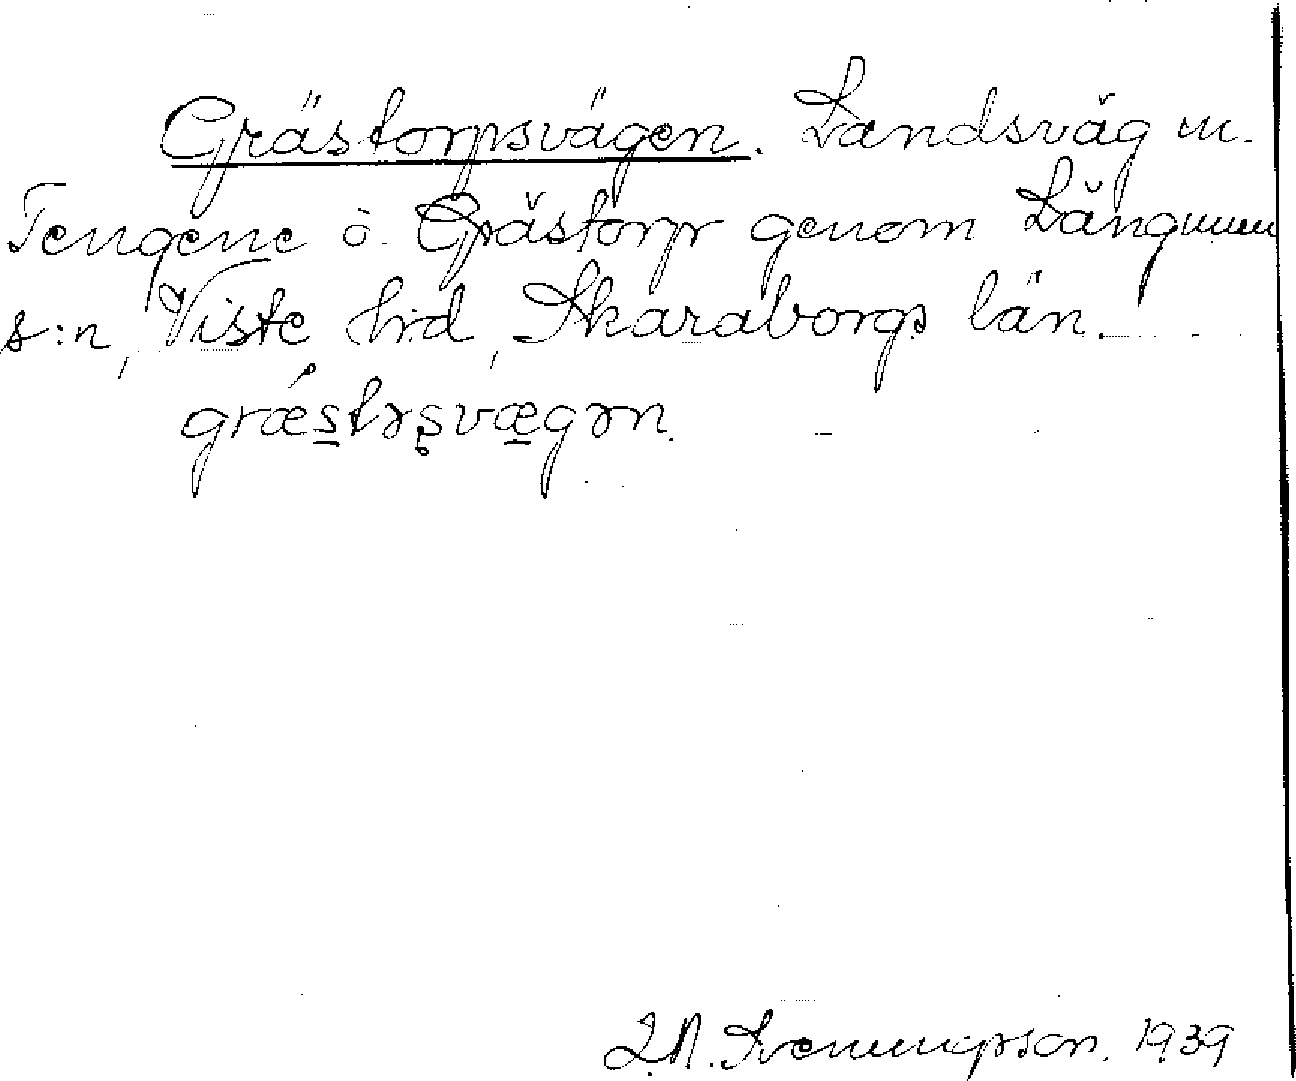 Grästorpsvägen. Landsväg m.
Tengene o. Grästorp genom Längnum
s:n, Viste hrd, Skaraborgs län.
græ´stəʂvægən.
J.N. Svenungsson. 1939